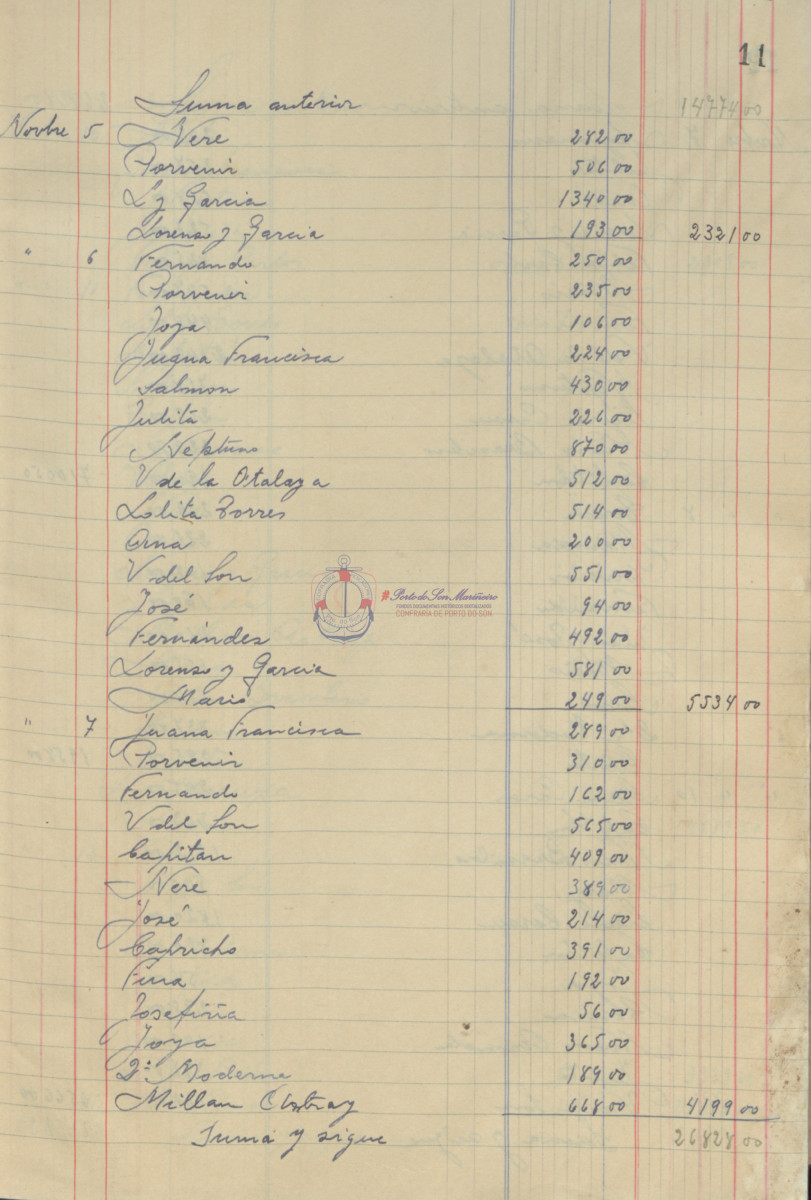 11
Suma anterior 14774 00
Novbre 5 Nere 282 00
Porvenir 506 00
L y Garcia 1340 00
Lorenzo y Garcia 193 00 2321 00
" 6 Fernando 250 00
Porvenir 235 00
Joya 106 00
Juana Francisca 224 00
Salmon 430 00
Julita 226 00
Neptuno 870 00
V de la Atalaya 512 00
Lolita Torres 514 00
Ana 200 00
V del Son 551 00
José 94 00
Fernández 492 00
Lorenzo y Garcia 581 00
Mario 249 00 5534 00
" 7 Juana Francisca 289 00
Porvenir 310 00
Fernando 162 00
V del Son 565 00
Capitan 409 00
Nere 389 00
José 214 00
Capricho 391 00
Fina 192 00
Josefina 56 00
Joya 365 00
2ª Moderna 189 00
Millan Astray 668 00 4199 00
Suma y sigue 26828 00
Porto do Son Mariñeiro
FONDOS DOCUMENTAIS HISTÓRICOS DIXITALIZADOS
CONFRARÍA DE PORTO DO SON